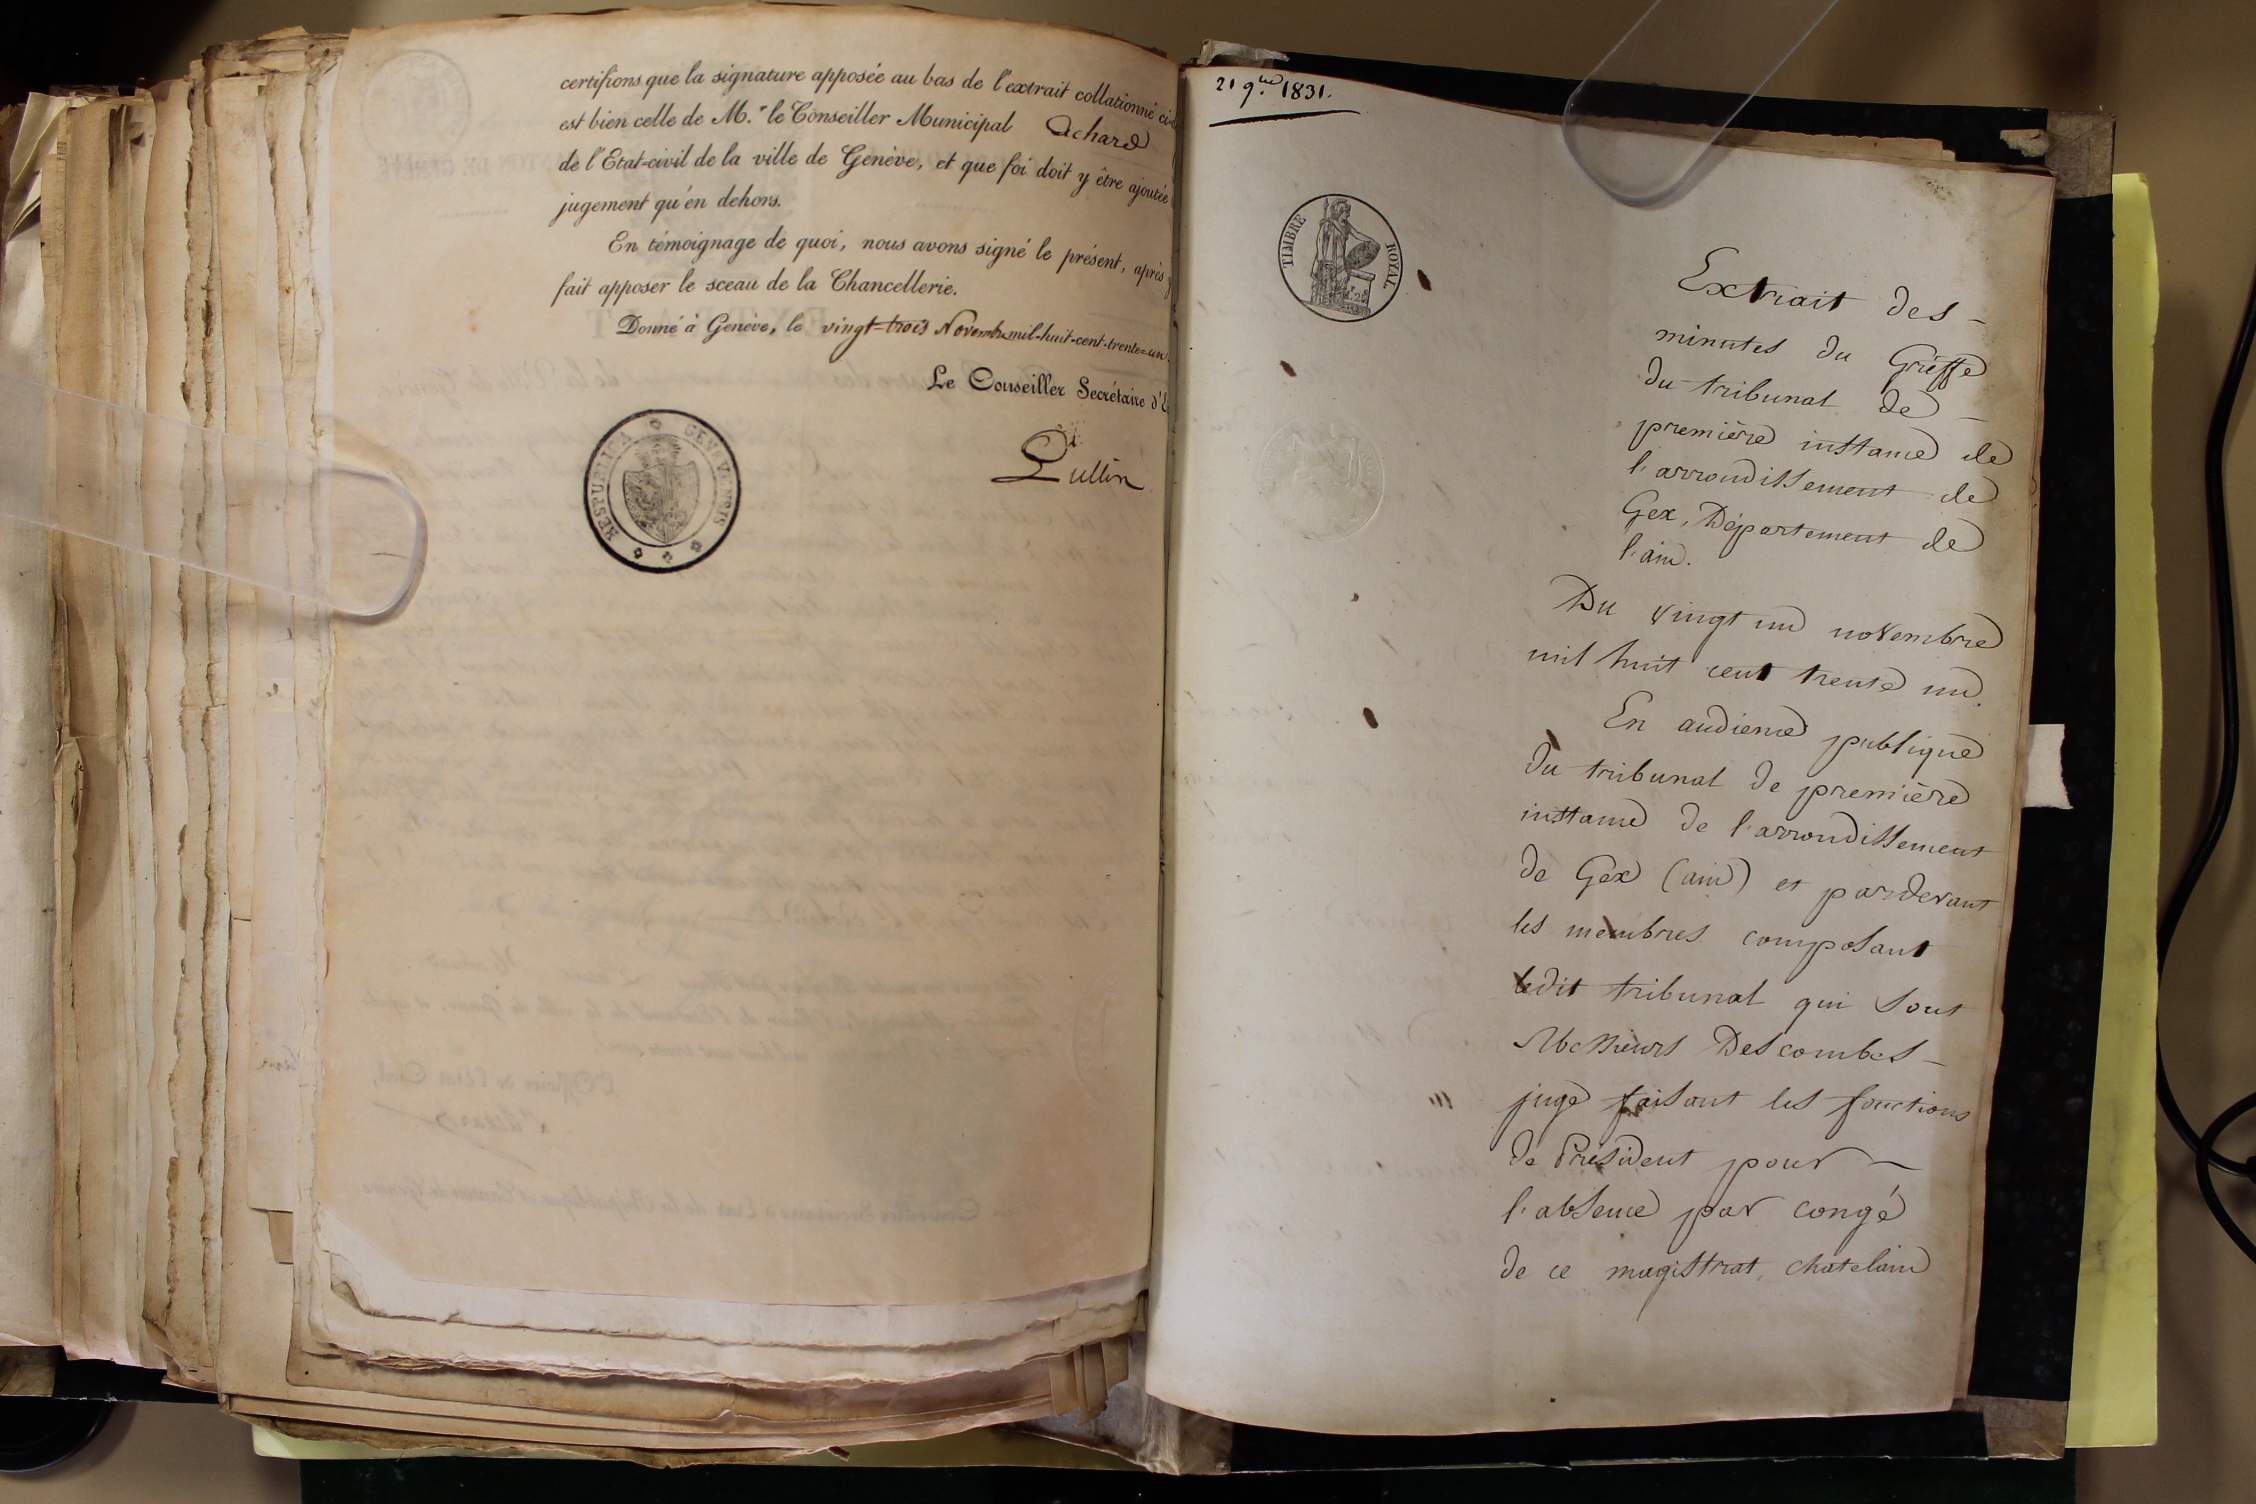 certifions que la signature apposée au bas de l'extrait collationné ci-
est bien celle de M.r le Conseiller Municipal Achard
de l'Etat-civil de la ville de Genève, et que foi doit y être ajoutée
jugement qu'en dehors.
En témoignage de quoi, nous avons signé le présent, après y
fait apposer le sceau de la Chancellerie.
Donné à Genève, le vingt-trois Novembre mil-huit-cent-trente-un
Le Conseiller Secrétaire d'E
Lullin
RESPUBLICA GENEVENSIS
21 9.bre 1831.
TIMBRE ROYAL
Extrait des
minutes du Greffe
du tribunal de
première instance de
l'arrondissement de
Gex, Département de
l'ain.
Du vingt un novembre
mil huit cent trente un.
En audience publique
du tribunal de première
instance de l'arrondissement
de Gex (ain) et pardevant
les membres composant
ledit tribunal qui sont
Messieurs Descombes
juge faisant les fonctions
de Président pour
l'absence par congé
de ce magistrat, chatelain